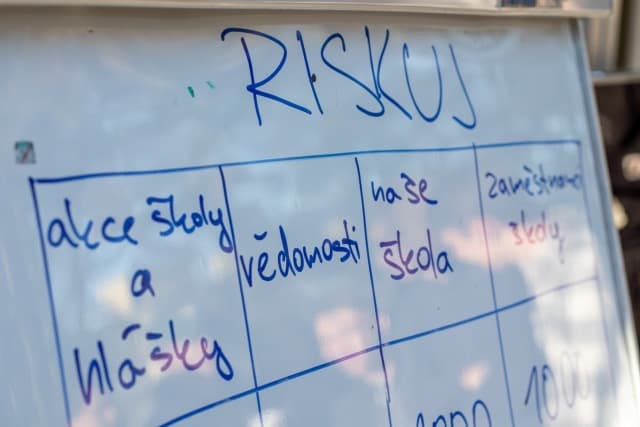 RISKUJ
akce školy
a
hlášky
vědomosti
naše
škola
zaměstnanci
školy
1000
1000